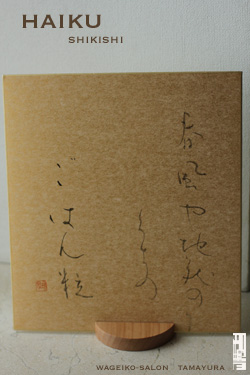 HAIKU
SHIKISHI
春風や地蔵の
くちの
ごはん粒
WAGEIKO-SALON TAMAYURA